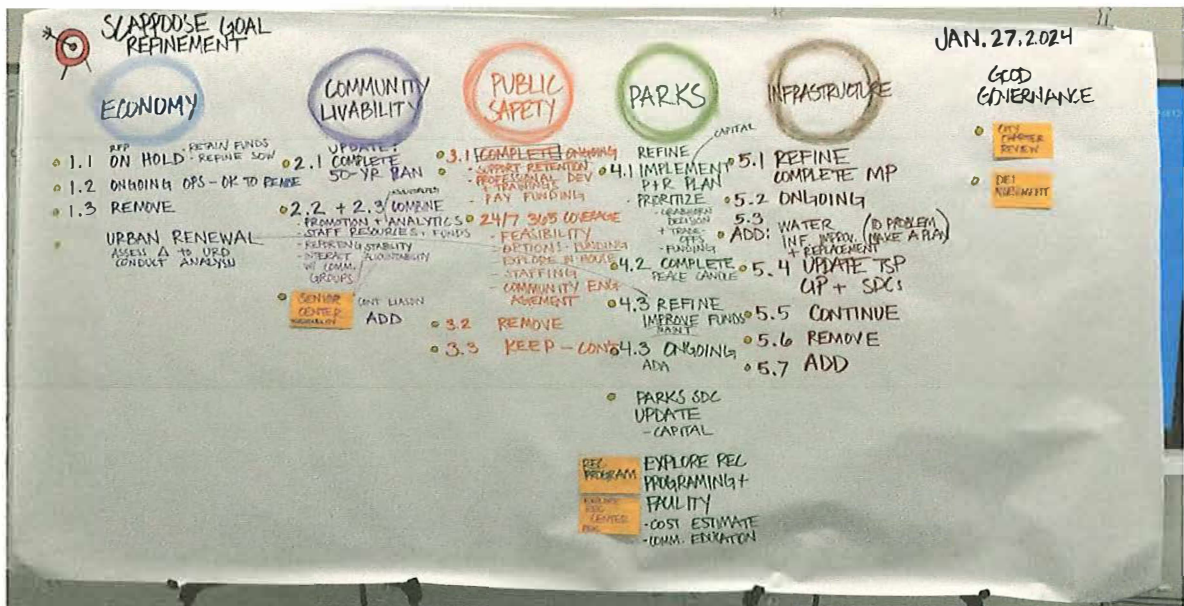 SCAPPOOSE GOAL
REFINEMENT
JAN. 27, 2024
ECONOMY
RFP
· RETAIN FUNDS
1.1 ON HOLD · REFINE SOW
1.2 ONGOING OPS - OK TO
1.3 REMOVE
URBAN RENEWAL
ASSESS Δ TO URD
CONDUCT ANALYSIS
COMMUNITY
LIVABILITY
UPDATE:
2.1 COMPLETE
50-YR PLAN
2.2 + 2.3 COMBINE
- PROMOTION + ANALYTICS
- STAFF RESOURCES + FUNDS
- REPORTING STABILITY
- INTERACT ACCOUNTABILITY
W/ COMM.
GROUPS
SENIOR
CENTER
CONT LIASON
ADD
PUBLIC
SAFETY
3.1 COMPLETE ONGOING
- SUPPORT RETENTION
- PROFESSIONAL DEV
+ TRAININGS
- PAY FUNDING
24/7 365 COVERAGE
- FEASIBILITY
- OPTIONS - FUNDING
- EXPLORE IN HOUSE
- STAFFING
- COMMUNITY ENG
AGEMENT
3.2 REMOVE
3.3 KEEP - CONT
PARKS
CAPITAL
REFINE
4.1 IMPLEMENT
P+R PLAN
- PRIORITIZE
- GRABHORN
DECISION
+ TRADE-
OFFS
- FUNDING
4.2 COMPLETE
PEACE CANDLE
4.3 REFINE
IMPROVE FUNDS
MAINT
4.3 ONGOING
ADA
PARKS SDC
UPDATE
- CAPITAL
REC
PROGRAM
EXPLORE REC
PROGRAMING +
FACILITY
- COST ESTIMATE
- COMM. EDUCATION
REC
CENTER
INFRASTRUCTURE
5.1 REFINE
COMPLETE MP
5.2 ONGOING
5.3
ADD: WATER (ID PROBLEM
INF. IMPROV. MAKE A PLAN)
+ REPLACEMENT
5.4 UPDATE TSP
CIP + SDCs
5.5 CONTINUE
5.6 REMOVE
5.7 ADD
GOOD
GOVERNANCE
CITY
CHARTER
REVIEW
DEI